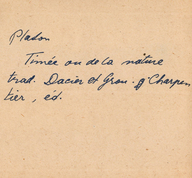 Platon
Timée ou de la nature
trad. Dacier et Grou. Charpen
tier, éd.